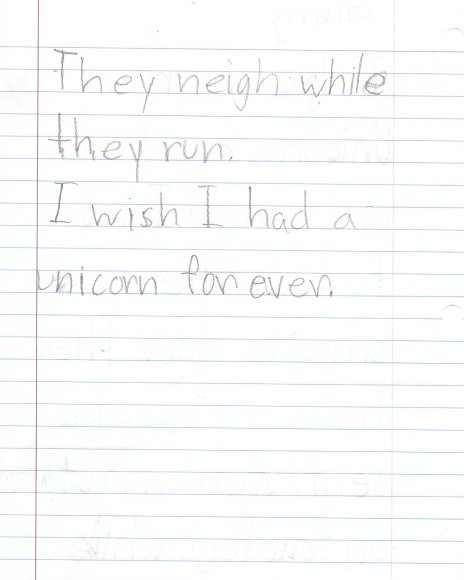 They neigh while
they run.
I wish I had a
unicorn for ever.